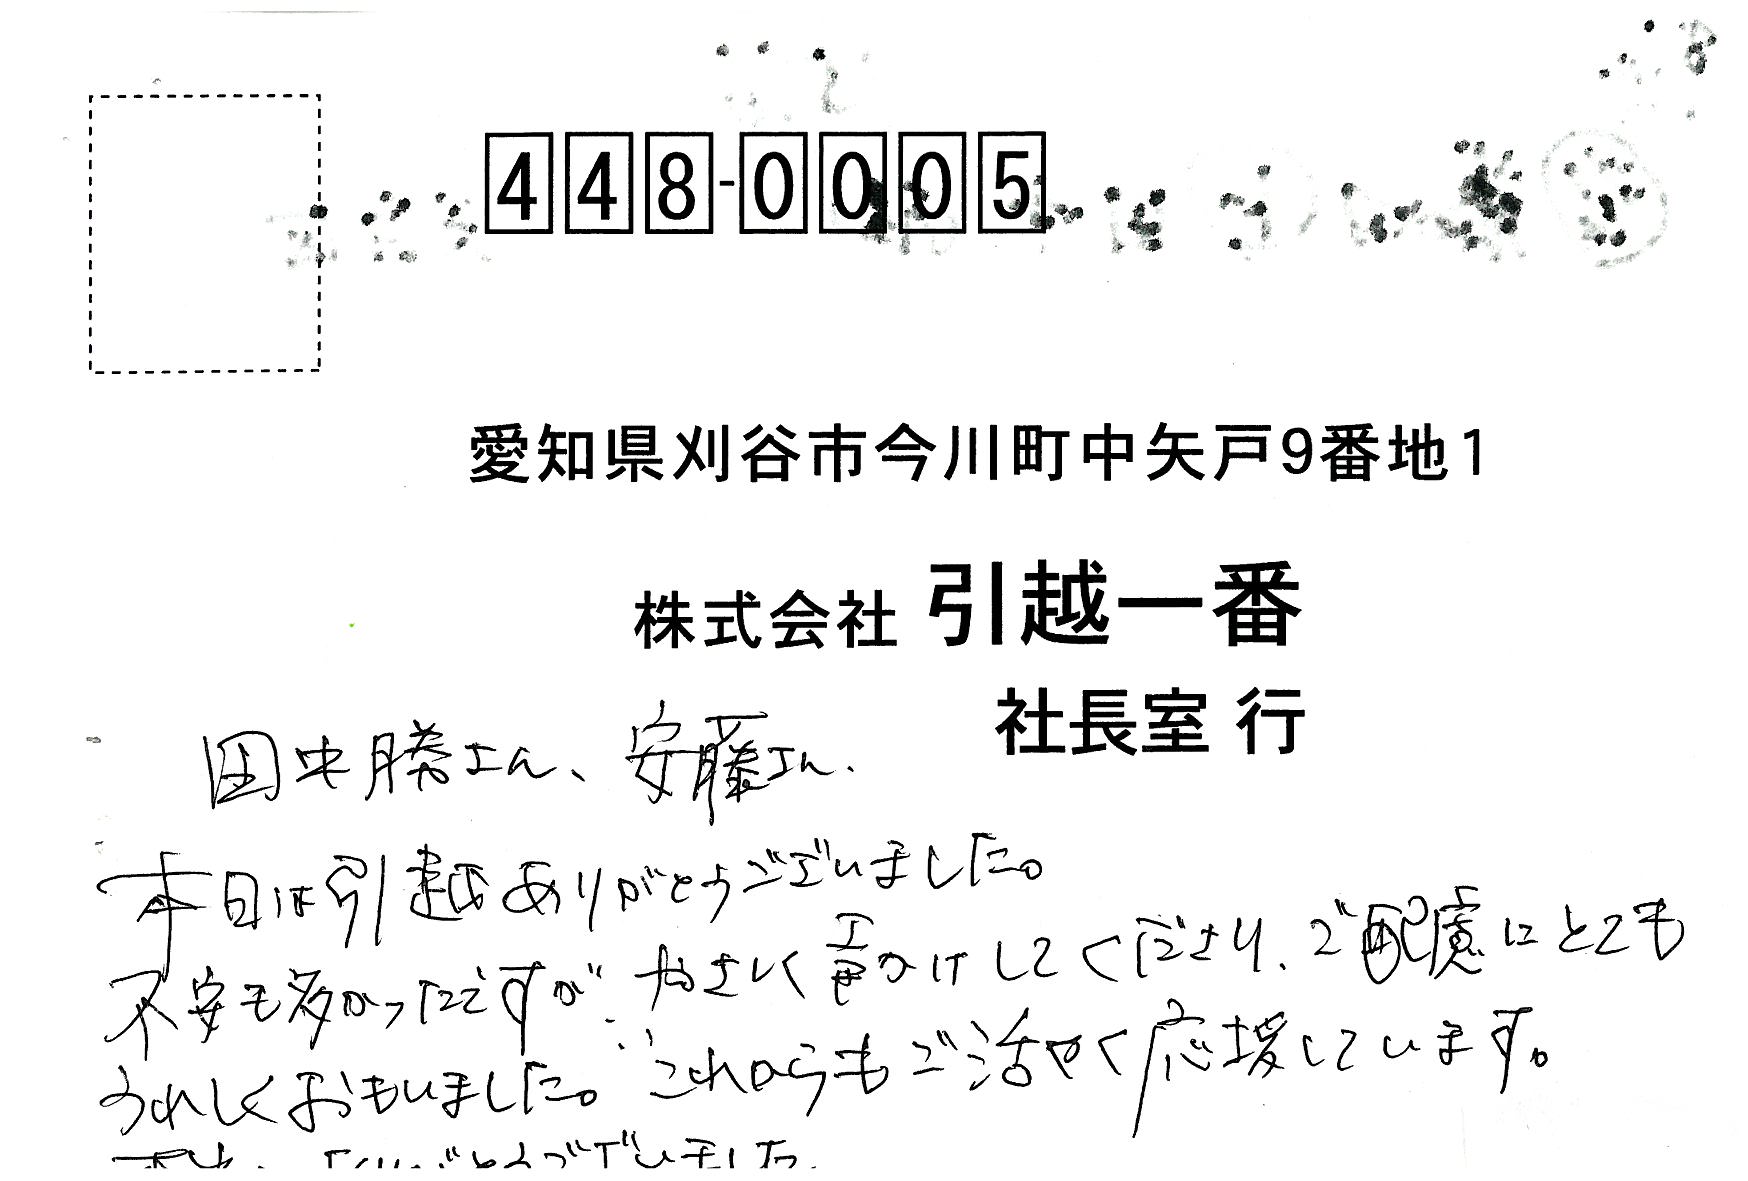 448-0005
愛知県刈谷市今川町中矢戸9番地1
株式会社 引越一番
社長室 行
田中勝さん、安藤さん、
本日は引越ありがとうございました。
不安も多かったですが、やさしく声かけしてくださり、ご配慮にとても
うれしくおもいました。これからもご活やく応援しています。
ありがとうございました